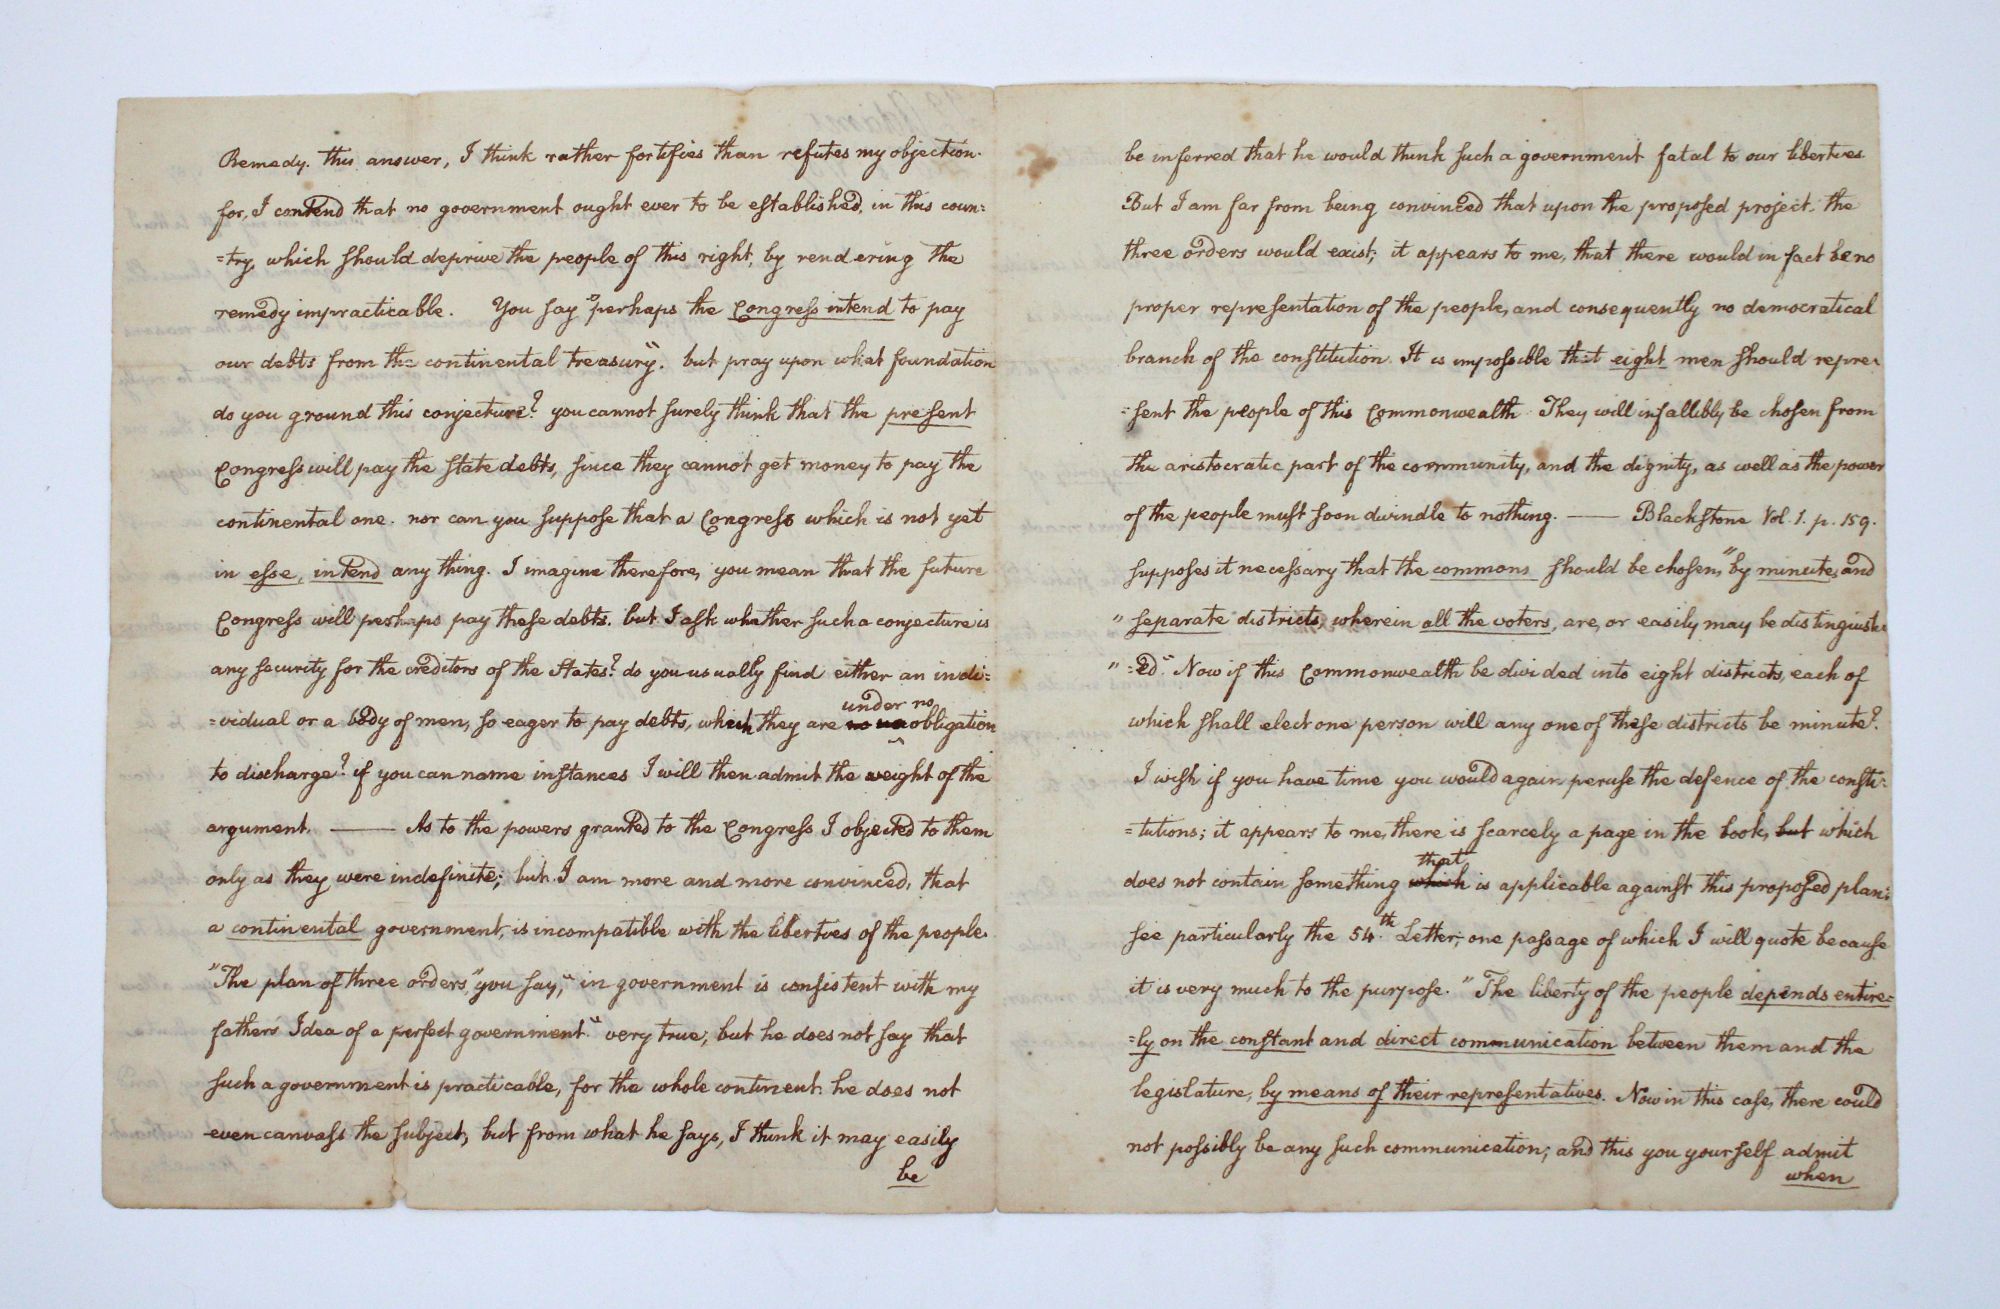 Remedy. this answer, I think rather fortifies than refutes my objection.
for, I contend that no government ought ever to be established, in this coun=
=try, which should deprive the people of this right, by rendering the
remedy impracticable. You say "perhaps the Congress intend to pay
our debts from the continental treasury". but pray upon what foundation
do you ground this conjecture? you cannot surely think that the present
Congress will pay the state debts, since they cannot get money to pay the
continental one. nor can you suppose that a Congress which is not yet
in esse, intend any thing. I imagine therefore, you mean that the future
Congress will perhaps pay these debts. but I ask whether such a conjecture is
any security for the creditors of the States? do you usually find either an indi=
=vidual or a body of men, so eager to pay debts, which they are under no obligation
to discharge? if you can name instances I will then admit the weight of the
argument. —— As to the powers granted to the Congress I objected to them
only as they were indefinite; but I am more and more convinced, that
a continental government, is incompatible with the liberties of the people.
"The plan of three orders," you say, "in government is consistent with my
father's Idea of a perfect government" very true; but he does not say that
such a government is practicable, for the whole continent. he does not
even canvass the subject, but from what he says, I think it may easily
be
be inferred that he would think such a government fatal to our liberties.
But I am far from being convinced that upon the proposed project, the
three orders would exist; it appears to me, that there would in fact be no
proper representation of the people, and consequently no democratical
branch of the constitution. It is impossible that eight men should repre=
=sent the people of this Commonwealth. They will infallibly be chosen from
the aristocratic part of the community, and the dignity, as well as the power
of the people must soon dwindle to nothing. —— Blackstone Vol. 1. p. 159.
supposes it necessary that the commons should be chosen, "by minute, and
" separate districts, wherein all the voters, are, or easily may be distinguish=
" =ed". Now if this Commonwealth be divided into eight districts, each of
which shall elect one person will any one of these districts be minute?
I wish if you have time you would again peruse the defence of the consti=
=tutions; it appears to me, there is scarcely a page in the book, but which
does not contain something which that is applicable against this proposed plan:
see particularly the 54.th Letter; one passage of which I will quote because
it is very much to the purpose. "The liberty of the people depends entire=
=ly on the constant and direct communication between them and the
legislature, by means of their representatives. Now in this case, there could
not possibly be any such communication; and this you yourself admit
when